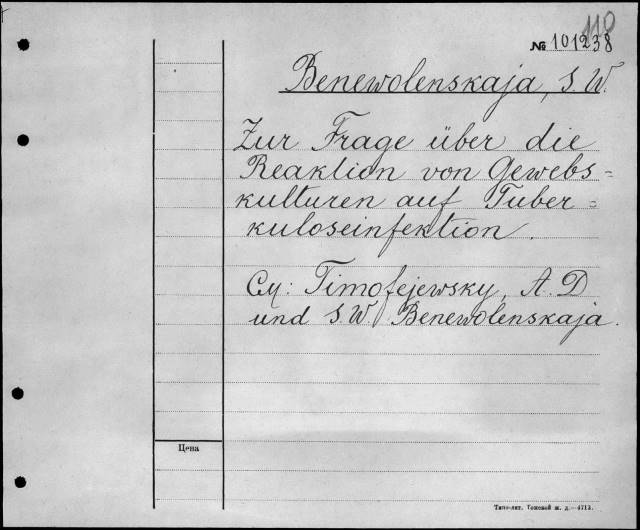 110
№ 101238
Benewolenskaja, S. W.
Zur Frage über die
Reaktion von Gewebs=
kulturen auf Tuber=
kuloseinfektion.
См: Timofejewsky, A. D
und S. W. Benewolenskaja.
Цена
Типо-лит. Томской ж. д.—4713.